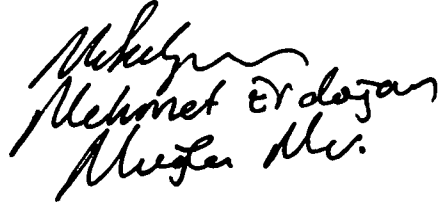 Mehmet Erdoğan
Muğla Mv.